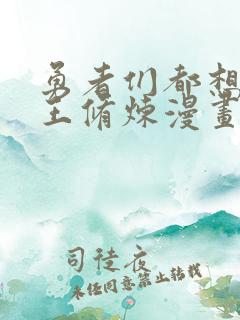 勇者们都想
王脩炼漫畫
司徒夜
未经同意禁止转载